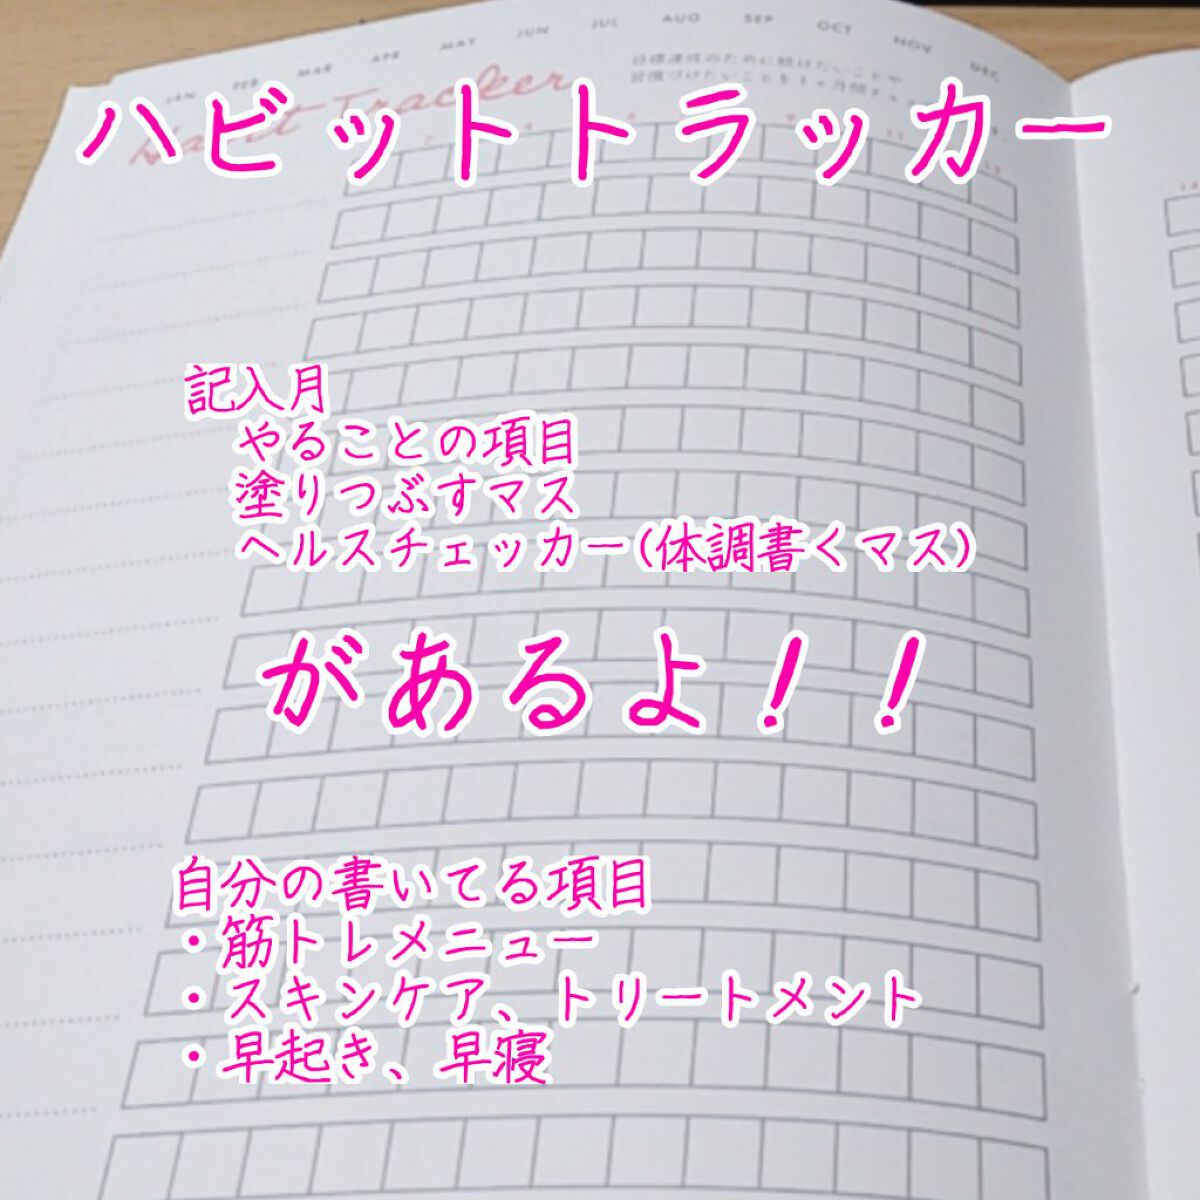 JAN FEB MAR APR MAY JUN JUL AUG SEP OCT NOV DEC
Habit Tracker
目標達成のために続けたいことや
習慣づけたいことを1ヶ月間チェ
ハビットトラッカー
記入月
やることの項目
塗りつぶすマス
ヘルスチェッカー(体調書くマス)
があるよ!!
自分の書いてる項目
・筋トレメニュー
・スキンケア、トリートメント
・早起き、早寝